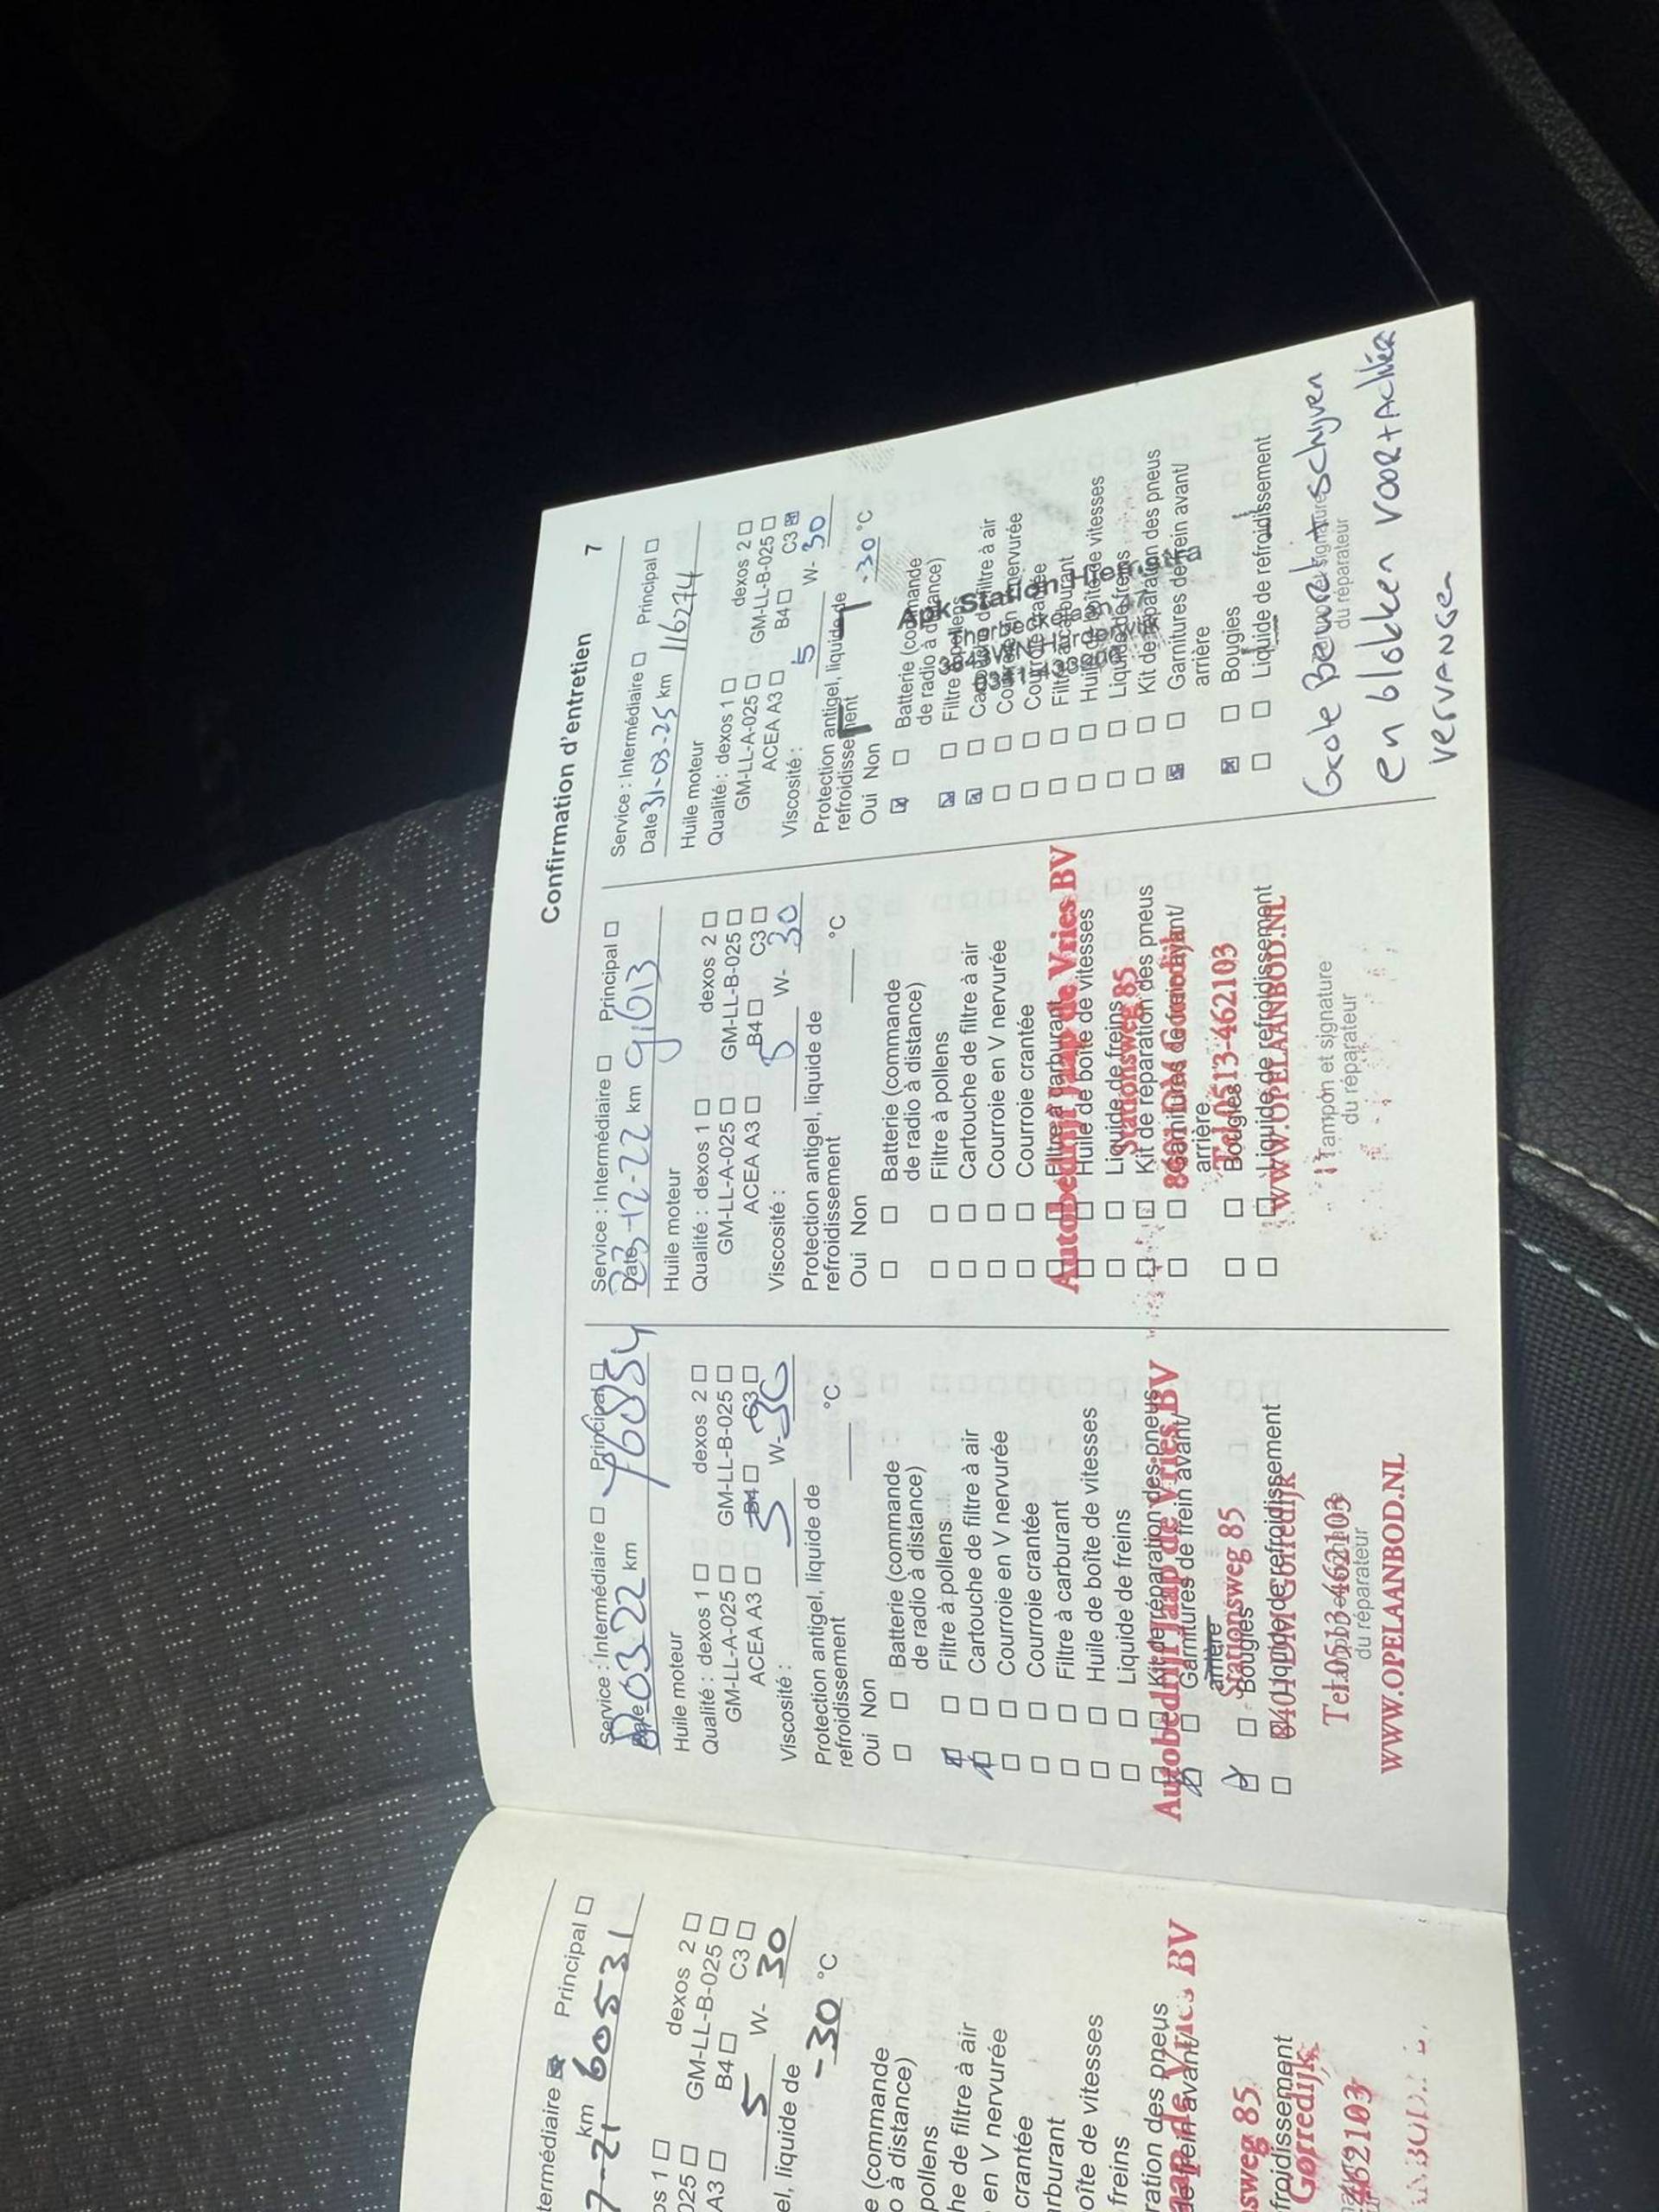 Confirmation d'entretien 7
termédiaire Principal
7-21 km 60531
os 1 dexos 2
025 GM-LL-B-025
A3 B4 C3
5 W- 30
el, liquide de
-30 °C
e (commande
o à distance)
pollens
he de filtre à air
en V nervurée
crantée
rburant
oîte de vitesses
freins
ration des pneus
frein avant/
sweg 85
froidissement
Gorredijk
462103
Service : Intermédiaire Principal
0322 km 76854
Huile moteur
Qualité : dexos 1 dexos 2
GM-LL-A-025 GM-LL-B-025
ACEA A3 B4 C3
Viscosité : 5 W- 30
Protection antigel, liquide de
refroidissement °C
Oui Non
Batterie (commande
de radio à distance)
Filtre à pollens
Cartouche de filtre à air
Courroie en V nervurée
Courroie crantée
Filtre à carburant
Huile de boîte de vitesses
Liquide de freins
Kit de réparation des pneus
Autobedrijf Jaap de Vries BV
Garnitures de frein avant/
arrière
Stationsweg 85
Bougies
Liquide de refroidissement
8401 DM Gorredijk
Tel.0513-462103
du réparateur
WWW.OPELAANBOD.NL
Service : Intermédiaire Principal
Date 23-12-22 km 91613
Huile moteur
Qualité : dexos 1 dexos 2
GM-LL-A-025 GM-LL-B-025
ACEA A3 B4 C3
Viscosité : 5 W- 30
Protection antigel, liquide de
refroidissement °C
Oui Non
Batterie (commande
de radio à distance)
Filtre à pollens
Cartouche de filtre à air
Courroie en V nervurée
Courroie crantée
Filtre à carburant
Autobedrijf Jaap de Vries BV
Huile de boîte de vitesses
Liquide de freins
Stationsweg 85
Kit de réparation des pneus
Garnitures de frein avant/
8401 DM Gorredijk
arrière
Bougies
Tel.0513-462103
Liquide de refroidissement
WWW.OPELAANBOD.NL
Tampon et signature
du réparateur
Service : Intermédiaire Principal
Date 31-03-25 km 116274
Huile moteur
Qualité : dexos 1 dexos 2
GM-LL-A-025 GM-LL-B-025
ACEA A3 B4 C3
Viscosité : 5 W- 30
Protection antigel, liquide de
refroidissement -30 °C
Oui Non
Batterie (commande
de radio à distance)
Apk Station Hiemstra
Filtre à pollens
Cartouche de filtre à air
Courroie en V nervurée
Courroie crantée
Filtre à carburant
Huile de boîte de vitesses
Liquide de freins
Kit de réparation des pneus
Garnitures de frein avant/
arrière
Bougies
Liquide de refroidissement
Grote Beurt + schijven
du réparateur
en blokken voor + Achter
vervangen